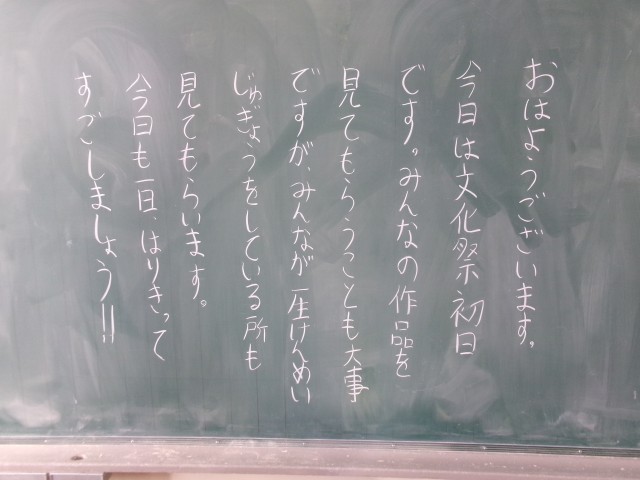 おはようございます。
今日は文化祭初日
です。みんなの作品を
見てもらうことも大事
ですが、みんなが一生けんめい
じゅぎょうをしている所も
見てもらいます。
今日も一日、はりきって
すごしましょう!!